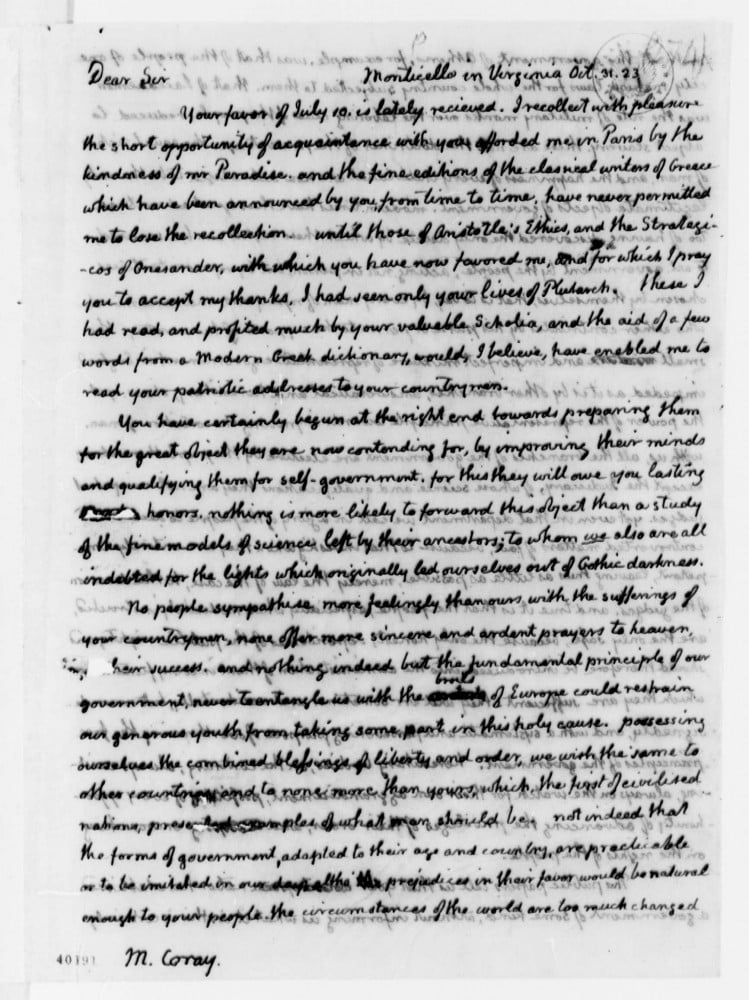 Dear Sir Monticello in Virginia Oct. 31. 23
Your favor of July 10. is lately recieved. I recollect with pleasure
the short opportunity of acquaintance with you afforded me in Paris by the
kindness of mr Paradise. and the fine editions of the classical writers of Greece
which have been announced by you, from time to time, have never permitted
me to lose the recollection. until those of Aristotle's Ethics, and the Strategi-
-cos of Onesander, with which you have now favored me, and for which I pray
you to accept my thanks, I had seen only your lives of Plutarch. These I
had read, and profited much by your valuable Scholia, and the aid of a few
words from a Modern Greek dictionary, would, I believe, have enabled me to
read your patriotic addresses to your countrymen.
You have certainly begun at the right end towards preparing them
for the great object they are now contending for, by improving their minds
and qualifying them for self-government. for this they will owe you lasting
honors. nothing is more likely to forward this object than a study
of the fine models of science left by their ancestors; to whom we also are all
indebted for the lights which originally led ourselves out of Gothic darkness.
No people sympathise more feelingly than ours with the sufferings of
your countrymen, none offer more sincere and ardent prayers to heaven
heir success. and nothing indeed but the fundamental principle of our
government, never to entangle us with the broils of Europe could restrain
our generous youth from taking some part in this holy cause. possessing
ourselves the combined blessings of liberty and order, we wish the same to
other countries, and to none more than yours, which, the first of civilised
nations, presented examples of what man should be. not indeed that
the forms of government, adapted to their age and country, are practicable
or to be imitated in our day, altho' prejudices in their favor would be natural
enough to your people. the circumstances of the world are too much changed
40191 M. Coray.